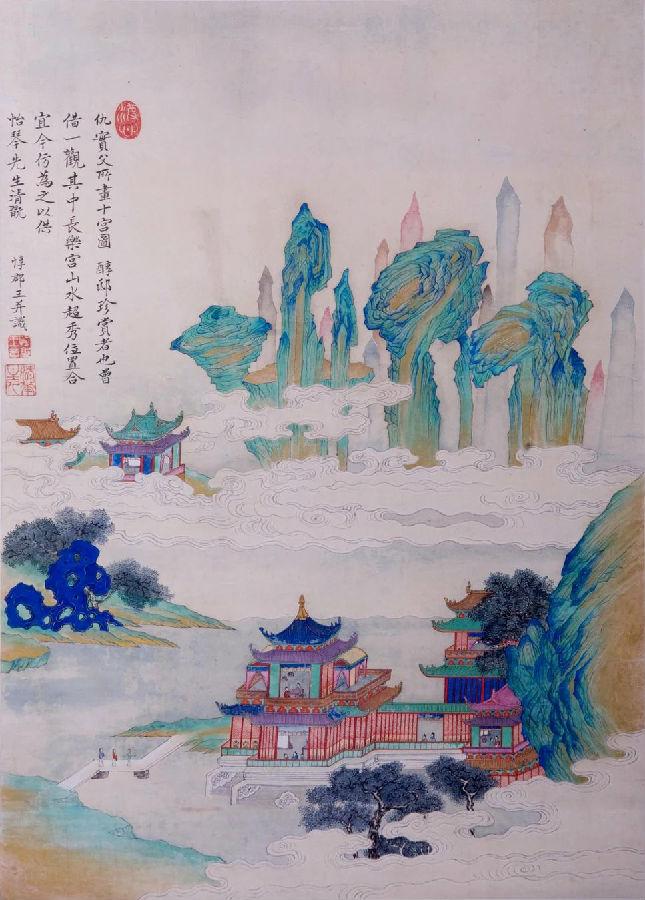 仇實父所畫十宮圖醇邸珍賞者也曾
借一觀其中長樂宮山水超秀位置合
宜今仿為之以供
怡琴先生清翫
惇郡王并識